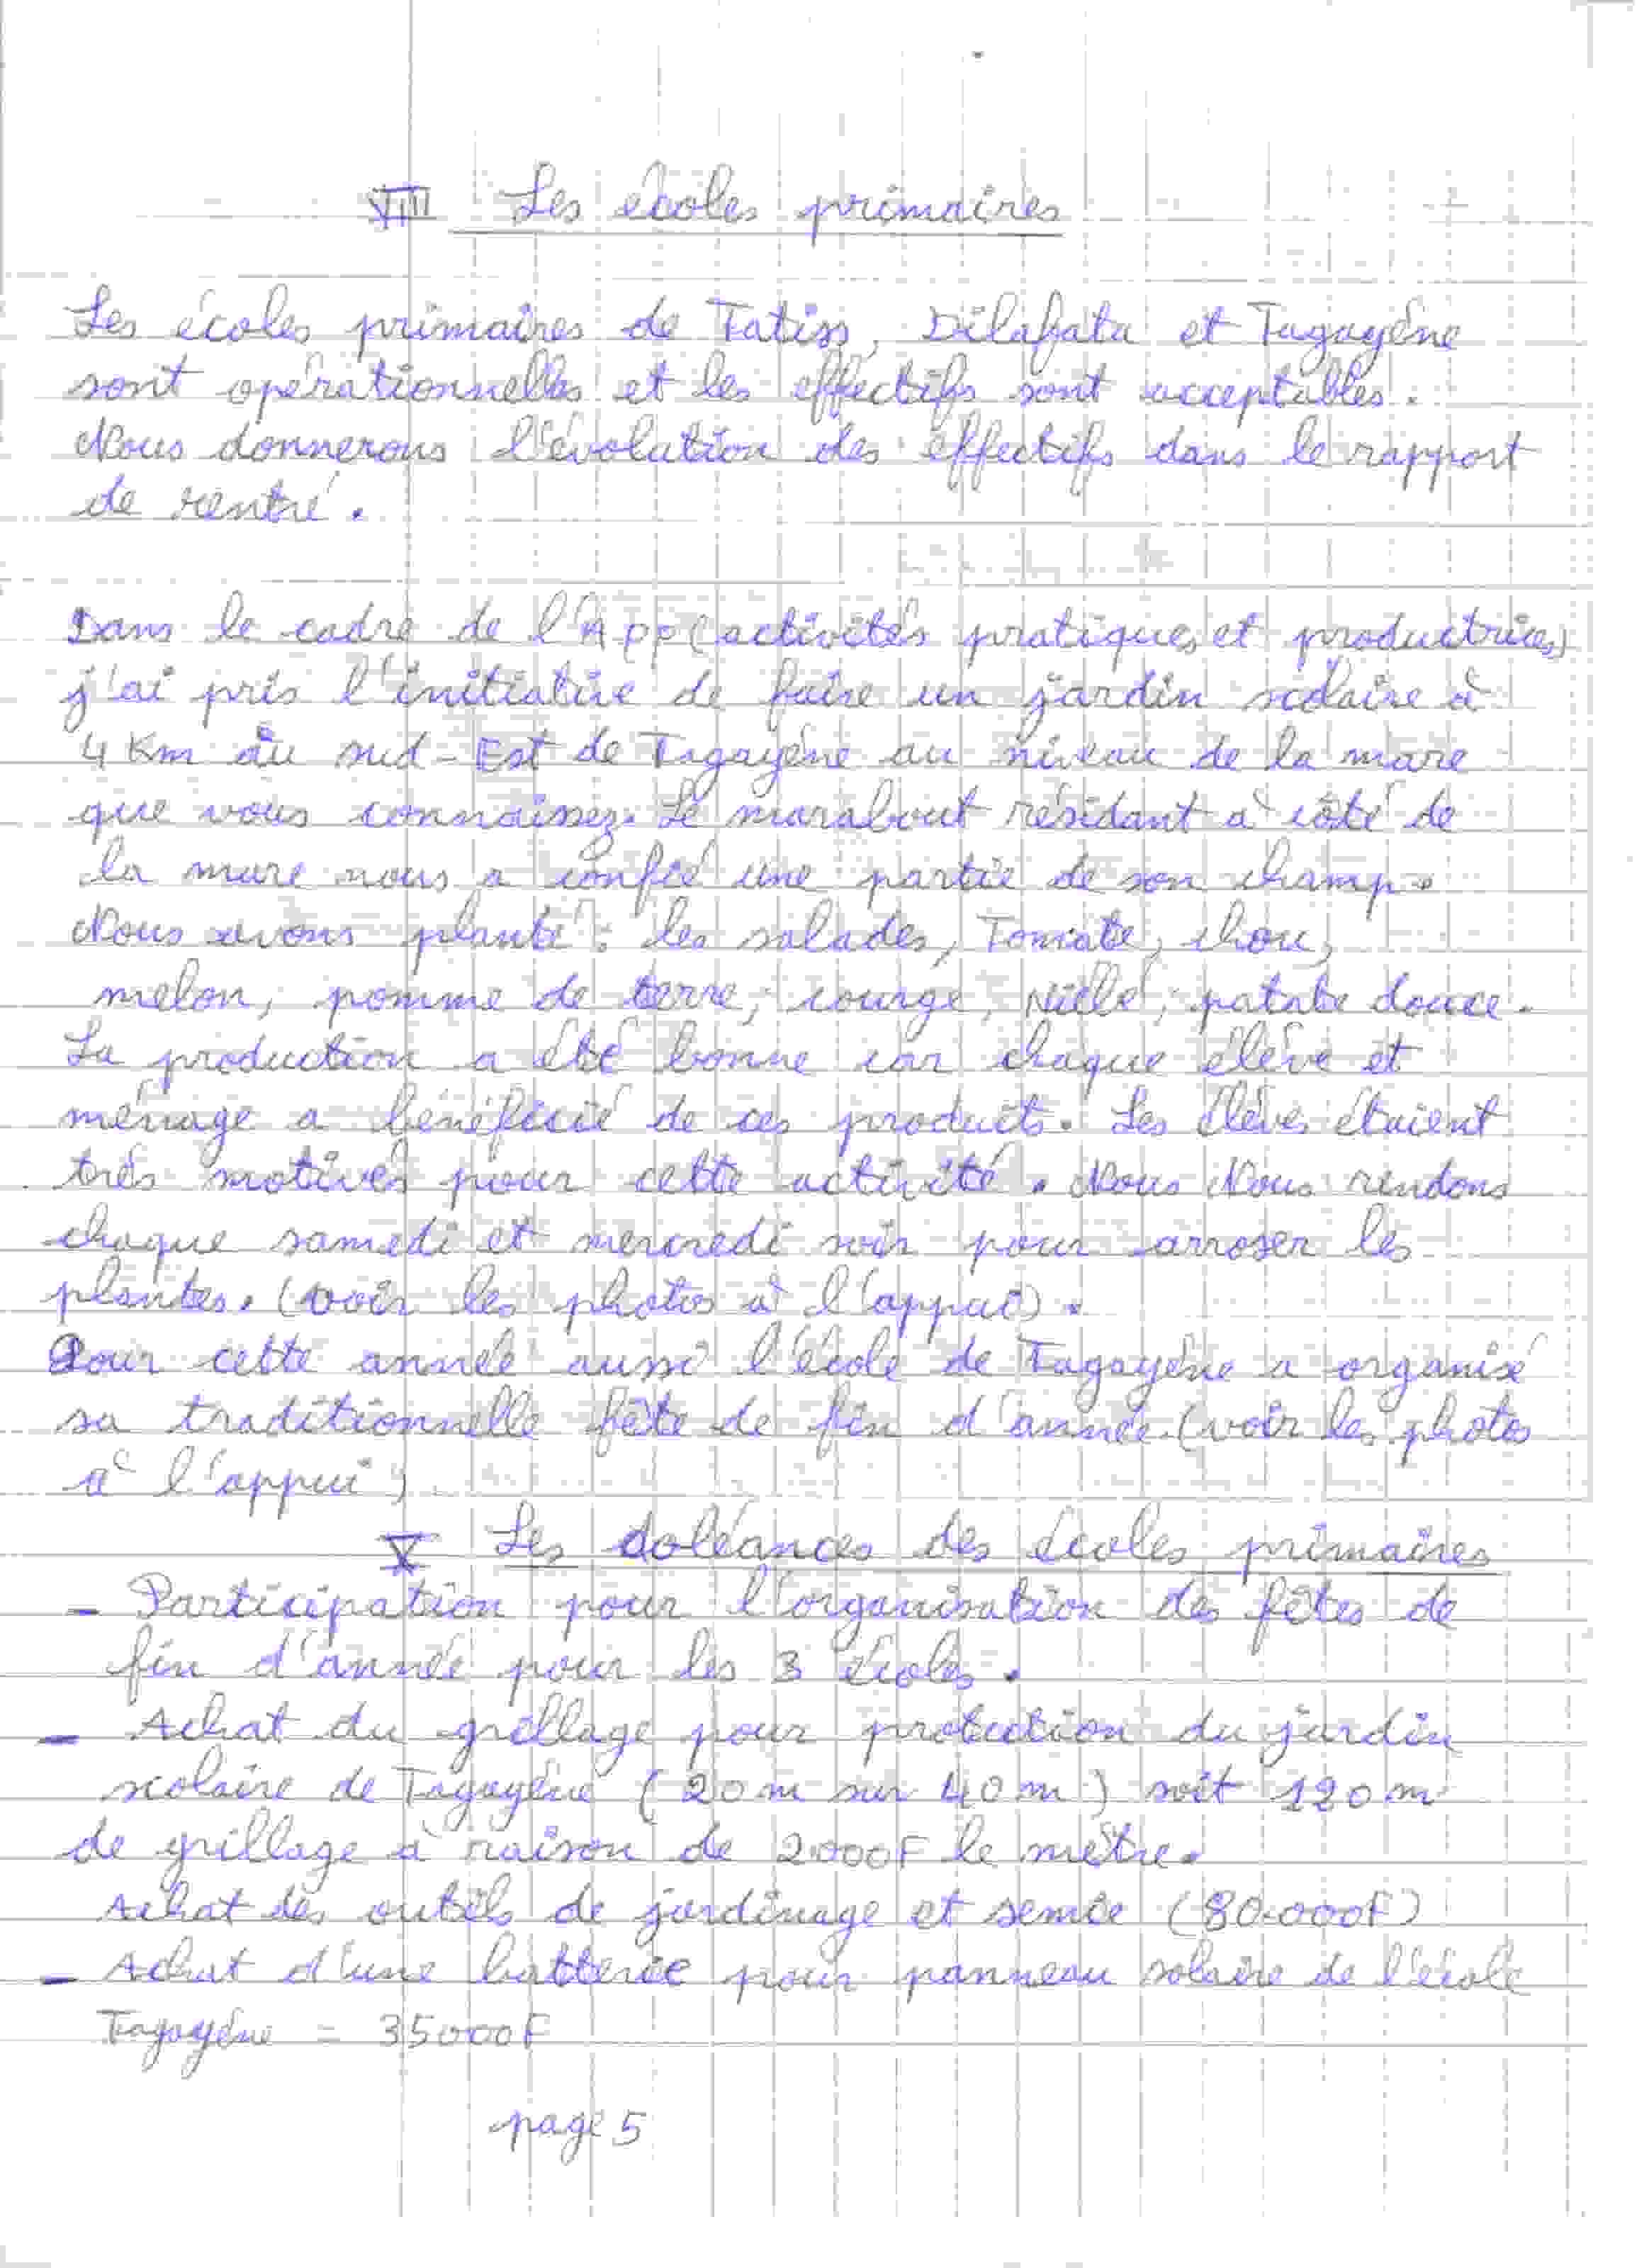 VIII Les écoles primaires
Les écoles primaires de Tatiss, Dilafata et Tagayéne
sont opérationnelles et les effectifs sont acceptables.
Nous donnerons l'évolution des effectifs dans le rapport
de rentré.
Dans le cadre de l'APP (activités pratiques et productrices)
j'ai pris l'initiative de faire un jardin scolaire à
4 Km au sud-Est de Tagayéne au niveau de la mare
que vous connaissez. Le marabout résidant à côté de
la mare nous a confié une partie de son champ.
Nous avons planté : les salades, Tomate, chou,
melon, pomme de terre, courge, Niébé, patate douce.
La production a été bonne car chaque élève et
ménage a bénéficié de ces produits. Les élèves étaient
très motivés pour cette activité. Nous Nous rendons
chaque samedi et mercredi soir pour arroser les
plantes. (voir les photos à l'appui).
Pour cette année aussi l'école de Tagayéne a organisé
sa traditionnelle fête de fin d'année. (voir les photos
à l'appui).
X Les doléances des écoles primaires
- Participation pour l'organisation des fêtes de
fin d'année pour les 3 écoles.
- Achat du grillage pour protection du jardin
scolaire de Tagayéne (20 m sur 40 m) soit 120 m
de grillage à raison de 2.000F le mètre.
Achat des outils de jardinage et semce (80.000F)
- Achat d'une batterie pour panneau solaire de l'école
Tagayéne = 35000F
page 5